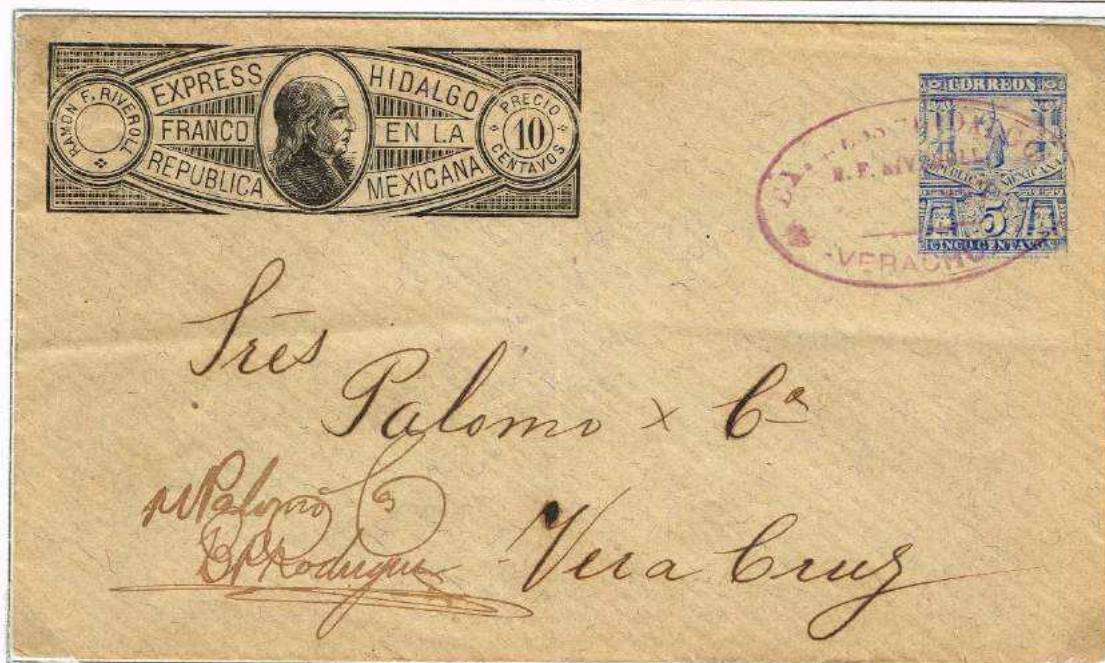 RAMON F. RIVEROLL
EXPRESS HIDALGO
FRANCO EN LA
REPUBLICA MEXICANA
PRECIO
10
CENTAVOS
CORREOS
REPUBLICA MEXICANA
5
CINCO CENTAVOS
R. F. RIVEROLL
VERACRUZ
Sres
Palomo x Ca
Palomo
Vera Cruz